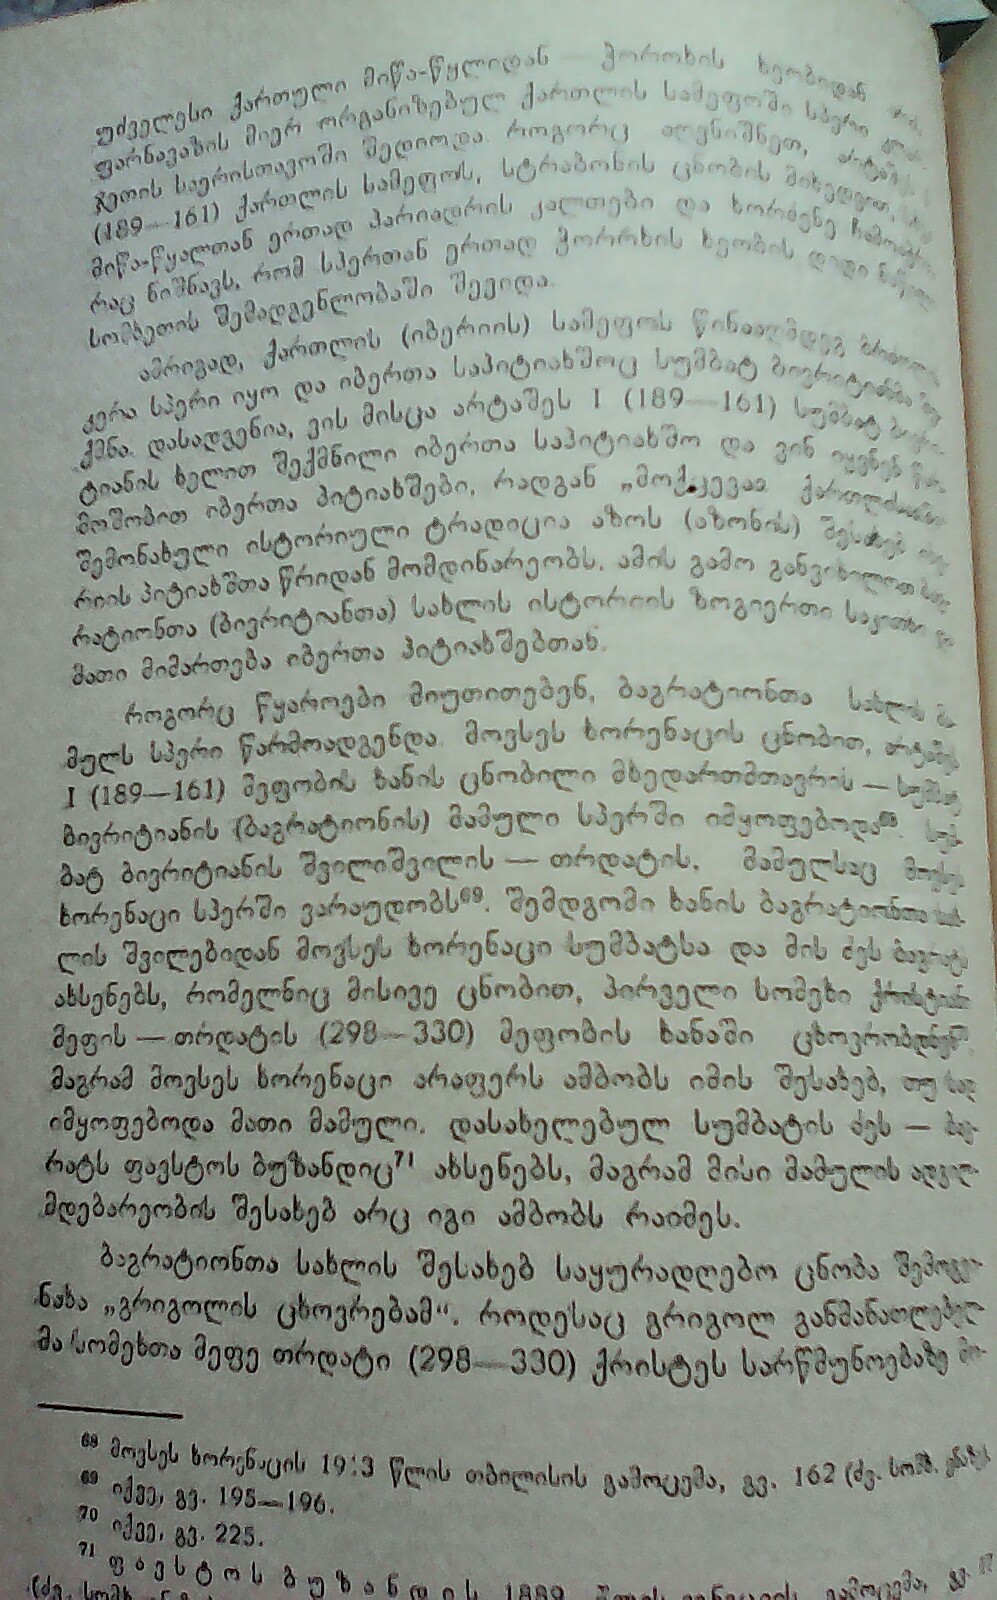 უძველესი ქართული მიწა-წყლიდან — ჭოროხის ხეობიდან
ფარნავაზის მიერ ორგანიზებულ ქართლის სამეფოში სპერი
ჯეთის საერისთავოში შედიოდა. როგორც აღვნიშნეთ,
(189—161) ქართლის სამეფოს, სტრაბონის ცნობის მიხედვით,
მიწა-წყალთან ერთად პარიადრის კალთები და ხორძენე
რაც ნიშნავს, რომ სპერთან ერთად ჭოროხის ხეობის დიდი ნაწილი
სომხეთის შემადგენლობაში შევიდა.
ამრიგად, ქართლის (იბერიის) სამეფოს წინააღმდეგ
კერა სპერი იყო და იბერთა საპიტიახშოც სუმბატ ბივრიტიანმა
ქმნა. დასადგენია, ვის მისცა არტაშეს I (189—161) სუმბატ
ტიანის ხელით შექმნილი იბერთა საპიტიახშო და ვინ იყვნენ
მოშობით იბერთა პიტიახშები, რადგან „მოქცევაჲ ქართლისაჲში“
შემონახული ისტორიული ტრადიცია აზოს (აზონის) შესახებ
რიის პიტიახშთა წრიდან მომდინარეობს. ამის გამო განვიხილოთ
რატიონთა (ბივრიტიანთა) სახლის ისტორიის ზოგიერთი საკითხი
მათი მიმართება იბერთა პიტიახშებთან.
როგორც წყაროები მიუთითებენ, ბაგრატიონთა სახლის
მულს სპერი წარმოადგენდა. მოვსეს ხორენაცის ცნობით, არტაშეს
I (189—161) მეფობის ხანის ცნობილი მხედართმთავრის — სუმბატ
ბივრიტიანის (ბაგრატიონის) მამული სპერში იმყოფებოდა⁶⁸. სუმ-
ბატ ბივრიტიანის შვილიშვილის — თრდატის, მამულსაც მოვსეს
ხორენაცი სპერში ვარაუდობს⁶⁹. შემდგომი ხანის ბაგრატიონთა სახ-
ლის შვილებიდან მოვსეს ხორენაცი სუმბატსა და მის ძეს ბაგრატს
ახსენებს, რომელნიც მისივე ცნობით, პირველი სომეხი ქრისტიანი
მეფის — თრდატის (298—330) მეფობის ხანაში ცხოვრობდნენ⁷⁰,
მაგრამ მოვსეს ხორენაცი არაფერს ამბობს იმის შესახებ, თუ სად
იმყოფებოდა მათი მამული. დასახელებულ სუმბატის ძეს — ბაგ-
რატს ფავსტოს ბუზანდიც⁷¹ ახსენებს, მაგრამ მისი მამულის ადგილ-
მდებარეობის შესახებ არც იგი ამბობს რაიმეს.
ბაგრატიონთა სახლის შესახებ საყურადღებო ცნობა შემოგვი-
ნახა „გრიგოლის ცხოვრებამ“. როდესაც გრიგოლ განმანათლებელ-
მა სომეხთა მეფე თრდატი (298—330) ქრისტეს სარწმუნოებაზე მო-
⁶⁸ მოვსეს ხორენაცის 1913 წლის თბილისის გამოცემა, გვ. 162 (ძვ. სომხ. ენაზე).
⁶⁹ იქვე, გვ. 195—196.
⁷⁰ იქვე, გვ. 225.
⁷¹ ფავსტოს ბუზანდის 1889 წლის გამოცემა, გვ.
(ძვ. სომხ.